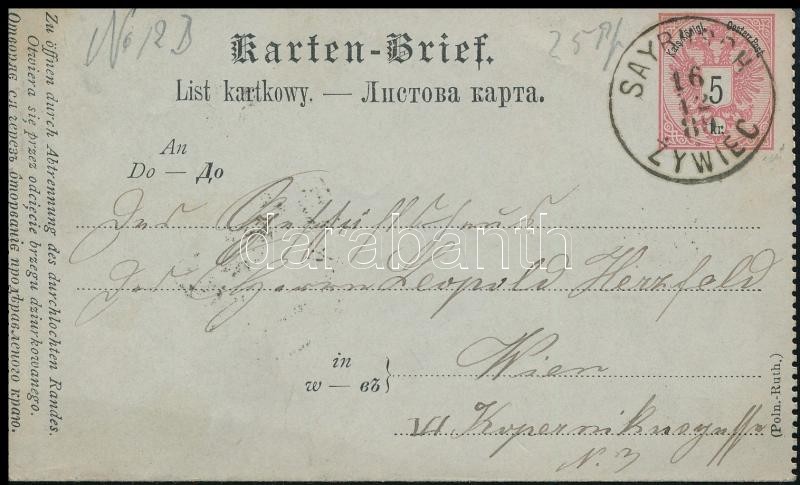 No 12 B
25 Pf
Karten-Brief.
List kartkowy. — Листова карта.
Kais. Königl. Oesterr. Post
5
kr.
SAYBUSCH
16
12
89
ZYWIEC
An
Do — До
Des
Des Herrn Leopold Herzfeld
in
w — въ
Wien
VI Kopernikusgasse
N. 3
(Poln.-Ruth.)
Zu öffnen durch Abtrennung des durchlochten Randes.
Otwiera się przez odcięcie brzegu dziurkowanego.
Отворяє ся черезъ ôторванє продѣравленого краю.
darabanth